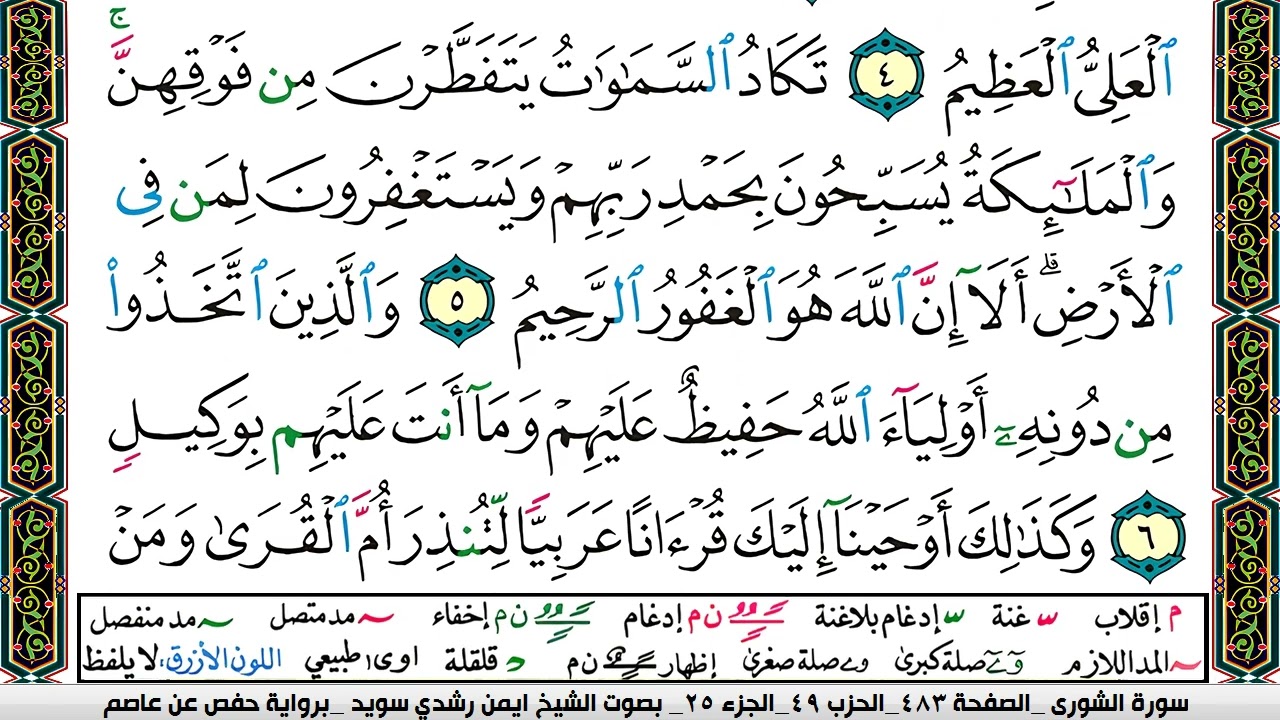 ٱلْعَلِىُّ ٱلْعَظِيمُ ٤ تَكَادُ ٱلسَّمَٰوَٰتُ يَتَفَطَّرْنَ مِن فَوْقِهِنَّ ۚ
وَٱلْمَلَٰٓئِكَةُ يُسَبِّحُونَ بِحَمْدِ رَبِّهِمْ وَيَسْتَغْفِرُونَ لِمَن فِى
ٱلْأَرْضِ ۗ أَلَآ إِنَّ ٱللَّهَ هُوَ ٱلْغَفُورُ ٱلرَّحِيمُ ٥ وَٱلَّذِينَ ٱتَّخَذُوا۟
مِن دُونِهِۦٓ أَوْلِيَآءَ ٱللَّهُ حَفِيظٌ عَلَيْهِمْ وَمَآ أَنتَ عَلَيْهِم بِوَكِيلٍ
٦ وَكَذَٰلِكَ أَوْحَيْنَآ إِلَيْكَ قُرْءَانًا عَرَبِيًّا لِّتُنذِرَ أُمَّ ٱلْقُرَىٰ وَمَنْ
م إقلاب س غنة س إدغام بلاغنة ن م إدغام ن م إخفاء ~ مد متصل ~ مد منفصل
~ المد اللازم صلة كبرى صلة صغرى إظهار ن م د قلقلة اوى طبيعي اللون الأزرق، لا يلفظ
سورة الشورى _الصفحة ٤٨٣_الحزب ٤٩_الجزء ٢٥_ بصوت الشيخ ايمن رشدي سويد _برواية حفص عن عاصم